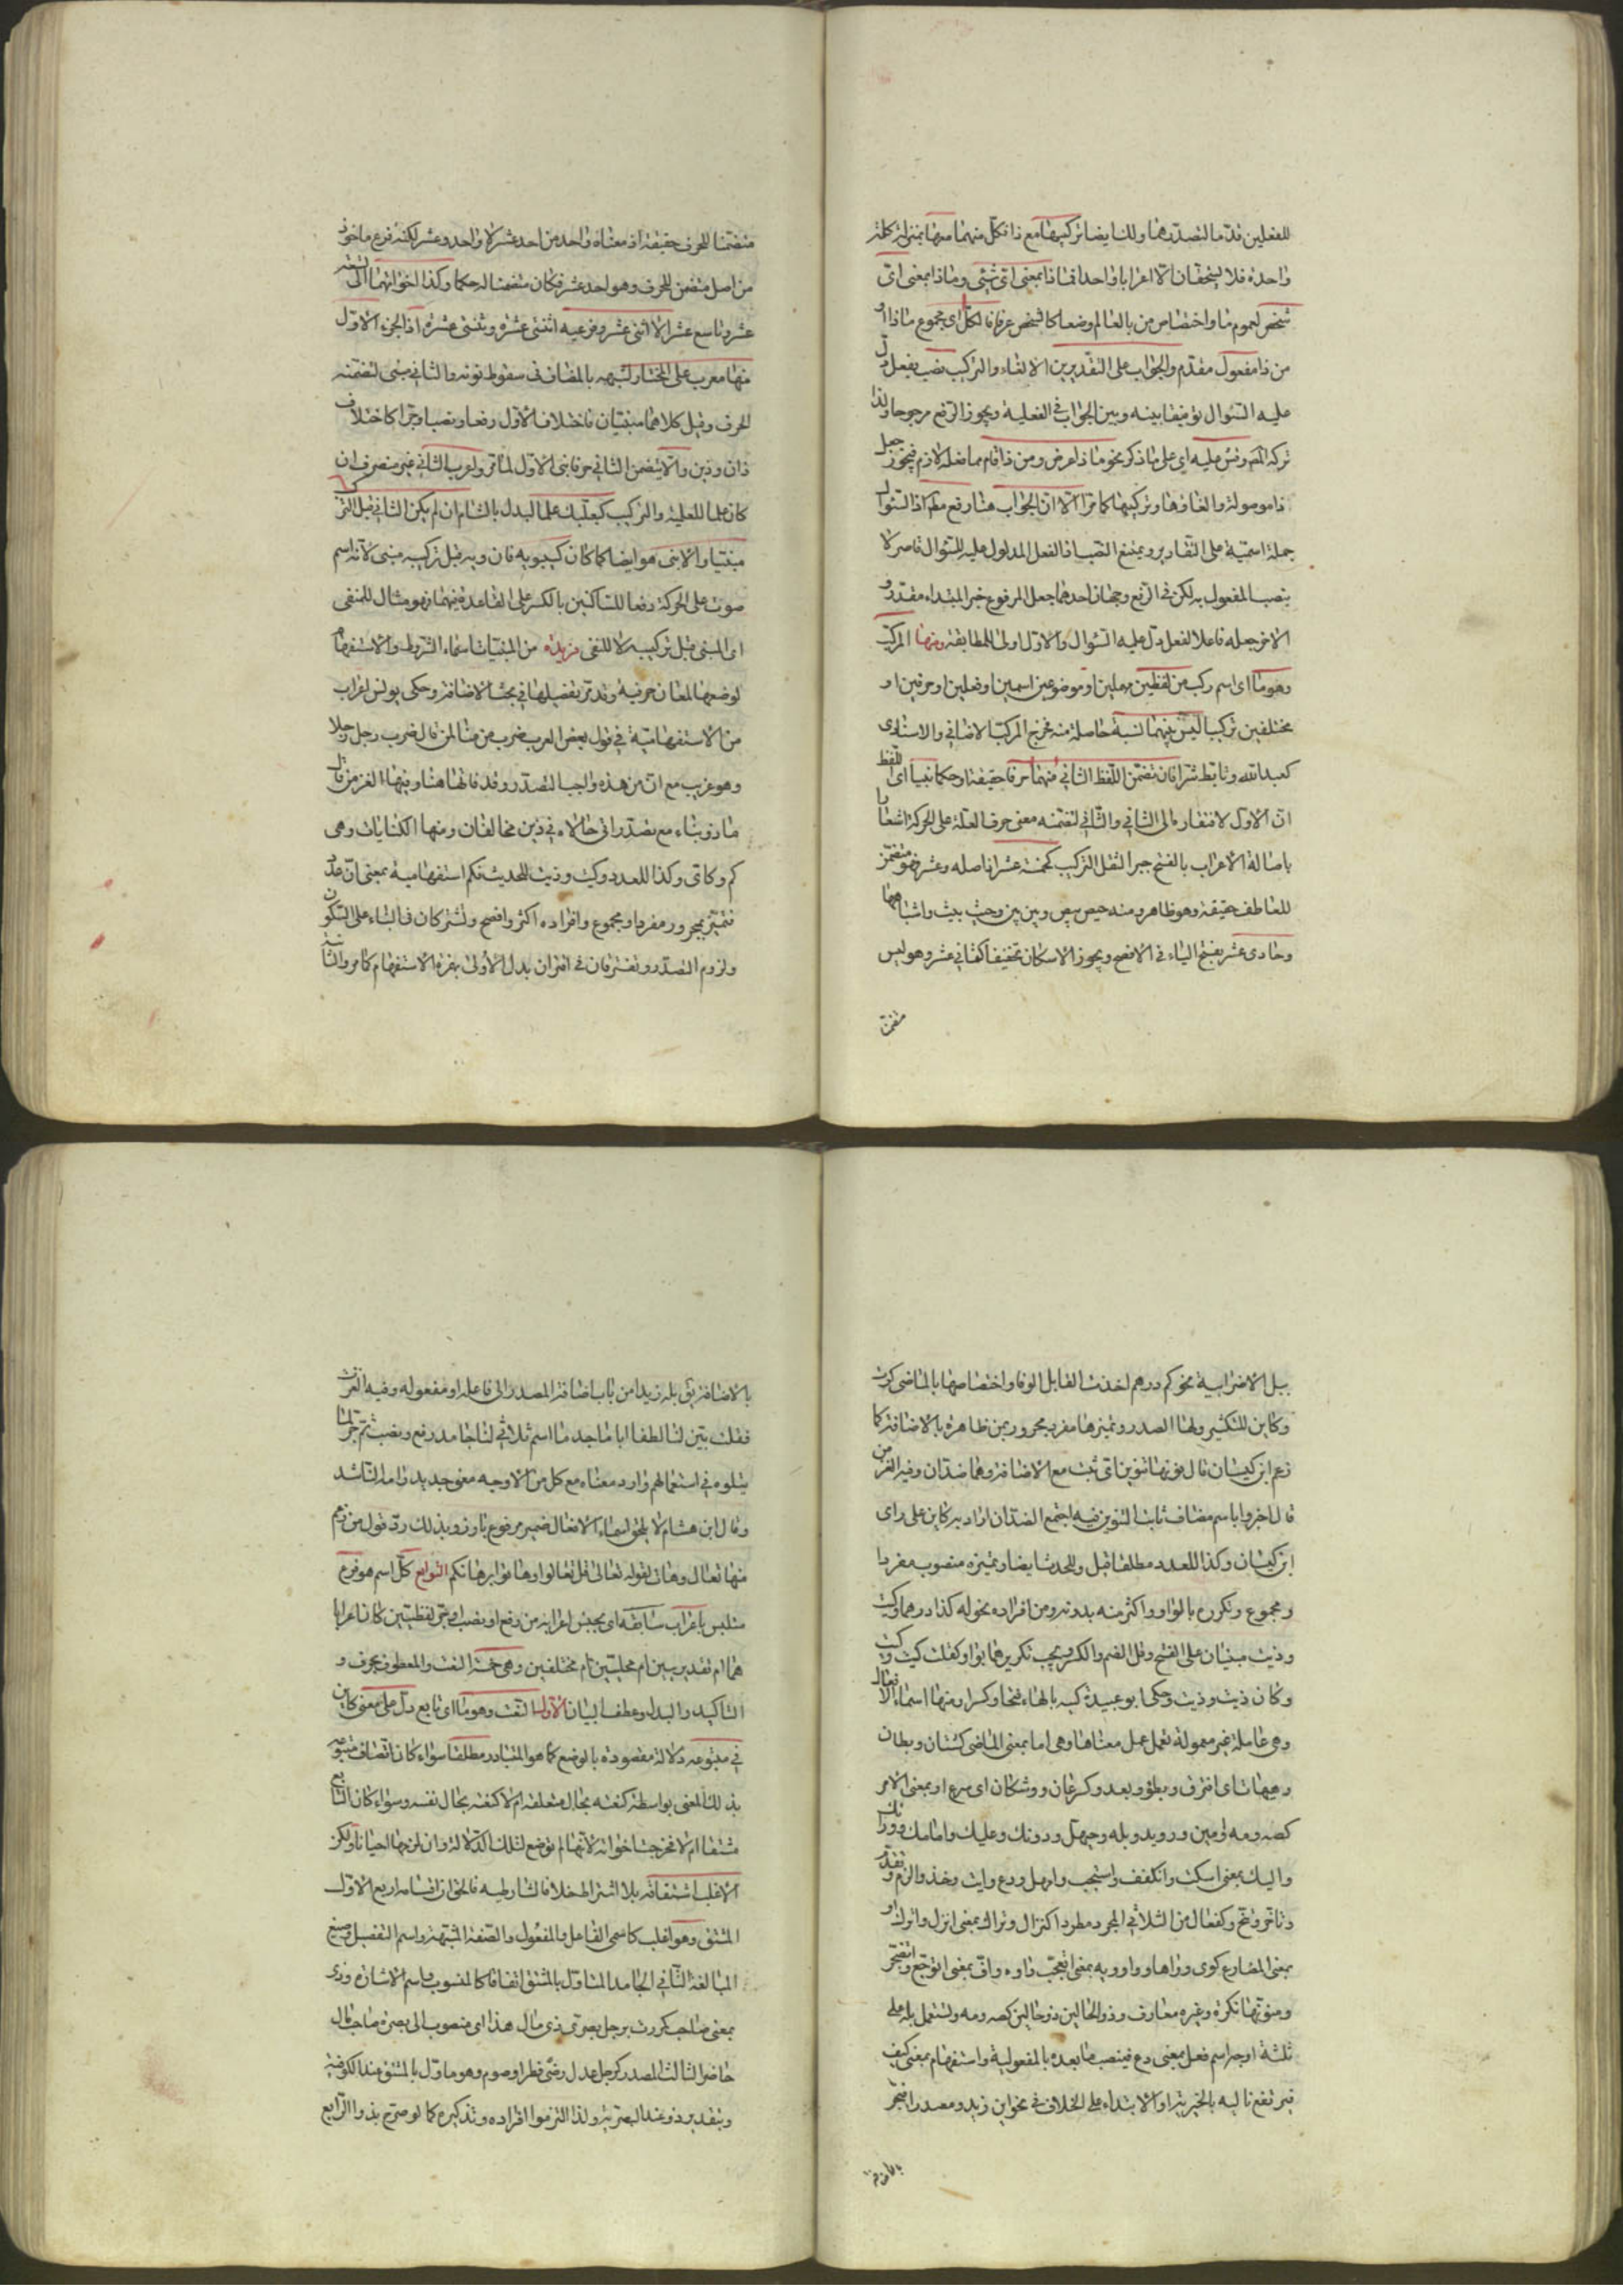 للفعلين قدّما لتصدّرهما ولك ايضا تركيبهما مع ذا فكلّ منهما معها بمنزلة كلمة
واحدة فلا يستحقّان الّا اعرابا واحدا فماذا بمعنى اىّ شيئ ومن ذا بمعنى اىّ
شخص لعموم ما واختصاص من بالعالم وضعا كالشخص عرفا فالكلّ اى مجموع ماذا او
من ذا مفعول مقدّم والجواب على التقديرين الالغاء والتركيب نصب بفعل دلّ
عليه السّوال توفيقا بينه وبين الجواب في الفعلية ويجوز الرّفع مرجوحا ولذا
تركه المص وقس عليه اى على ما ذكر نحو ماذا عرض ومن ذا قام مما فعله لازم فيجوز جعل
ذا موصولة والغاؤها وتركيبها كما مرّ الّا انّ الجواب هنا رفع مطلقا اذ السّوال
جملة اسميّة على التقادير ويمتنع النّصب اذ الفعل المدلول عليه للسّوال قاصر لا
ينصب المفعول به لكن في الرّفع وجهان احدهما جعل المرفوع خبر المبتداء مقدّر و
الاخر جعله فاعلا لفعل دلّ عليه السّوال والاوّل اولى للمطابقة ومنها المركّب
وهو ما اى اسم ركب من لفظين مهملين او موضوعين اسمين او فعلين او حرفين او
مختلفين تركيبا ليس بينهما نسبة حاصلة منه فخرج المركّب الاضافي والاسنادى
كعبد الله وتابّط شرّا فان تضمّن اللّفظ الثاني منهما حرفا حقيقة او حكما بنيا اى اللّفظ
انّ الاوّل لافتقاره الى الثاني والثّاني لتضمّنه معنى حرف العلّة على الحركة اشعارا
باصالة الاعراب بالفتح جبرا لثقل التركيب كخمسة عشر اذ اصله وعشر فهو متضمّن
للعاطف حقيقة وهو ظاهر ومنه حيص بيص وبين بين وحيث بيث واشباهها
وحادى عشر بفتح الياء في الافصح ويجوز الاسكان تخفيفا كثاني عشر وهو ليس
متضمّنا
متضمّنا للحرف حقيقة اذ معناه واحد من احد عشر لا واحد وعشر لكنه فرع ماخوذ
من اصل متضمّن للحرف وهو احد عشر فكان متضمنا له حكما وكذا اخواتهما الى تسعة
عشر وتاسع عشر الّا اثنى عشر وفرعيه اثنتى عشرة وثنتى عشرة اذ الجزء الاوّل
منها معرب على المختار لشبهه بالمضاف في سقوط نونه والثاني مبنى لتضمّنه
الحرف وقيل كلاهما مبنيّان فاختلاف الاوّل رفعا ونصبا وجرّا كاختلاف
ذان وذين والّا يتضمن الثاني حرفا بنى الاوّل لما مرّ واعرب الثاني غير منصرف ان
كان علما للعلميّة والتركيب كبعلبك علما لبلد بالشام ان لم يكن الثاني قبل التركيب
مبنيا والّا بنى هو ايضا كما كان كسيبويه فان ويه قبل تركيبه مبنى لانّه اسم
صوت على الحركة دفعا للسّاكنين بالكسر على القاعدة فيهما فهو مثال للمنفى
اى المبنى قبل تركيبه لا للنفى مزيدة من المبنيّات اسماء الشّروط والاستفهام
لوضعها لمعان حرفيّة وقد مرّ تفصيلها في بحث الاضافة وحكى يونس اعراب
من الاستفهاميّة في قول بعض العرب ضرب من منا لمن قال ضرب رجل رجلا
وهو غريب مع انّ من هذه واجب التصدّر وقد فاتها هنا وفيها الغز من قال
ماذو بناء مع تصدّر اتى حالاه في ذين مخالفان ومنها الكنايات وهى
كم وكاىّ وكذا للعدد وكيت وذيت للحديث فكم استفهاميّة بمعنى اىّ عدد
فتميّز بمجرور مفرد او مجموع وافراده اكثر وافصح ويشتركان في البناء على السّكون
ولزوم التصدّر وتفترقان في اقتران بدل الاولى بهمزة الاستفهام كما مرّ والثانية
ببل الاضرابية نحو كم درهم اخذت القابل الوفا واختصاصها بالماضى كربّ
وكاين للتكثير ولها الصدر ومميّزها مفرد مجرور بمن ظاهرة بالاضافة كما
زعم ابن كيسان قال نونها تنوين اىّ ثبت مع الاضافة وهما ضدّان وفيه الغز من
قال اخبروا باسم مضاف ثابت التنوين فيه اجتمع الضدّان اراد به كاين على راى
ابن كيسان وكذا للعدد مطلقا قبل وللحدث ايضا ومميّزه منصوب مفردا
ومجموع وتكرره بالواو واكثر منه بدونه ومن افراده نحوله كذا درهما وكيت
وذيت مبنيّان على الفتح وقلّ الضم والكسر ويجب تكريرهما بواو كقلت كيت وكيت
وكان ذيت وذيت وحكى ابو عبيدة كيّه بالهاء فتحا وكسرا ومنها اسماء الافعال
وهى عاملة غير معمولة تعمل عمل معناها وهى اما بمعنى الماضى كشتان وبطآن
وهيهات اى افترق وبطؤ وبعد وكسرعان ووشكان اى سرع او بمعنى الامر
كصه ومه وامين ورويد وبله وحيهل ودونك وعليك وامامك ووراءك
واليك بمعنى اسكت وانكفف واستجب وامهل ودع وايت وخذ والزم وتقدّم
وتاخّر وتنحّ وكفعال من الثلاثي المجرد مطردا كنزال وتراك بمعنى انزل واترك او
بمعنى المضارع كوى وواها وواو ويه بمعنى اتعجّب واوه واف بمعنى اتوجّع واتضجّر
ومنوّنها نكرة وغيره معارف وذو الحالين ذو حالين كصه ومه وتستعمل بله على
ثلثة اوجه اسم فعل بمعنى دع فينصب ما بعده بالمفعولية واستفهام بمعنى كيف
فيرتفع تاليه بالخبريّة او الابتداء على الخلاف في نحو اين زيد ومصدر فيجر
بالاضافة
بالاضافة ق بله زيد من باب اضافة المصدر الى فاعله او مفعوله وفيه الغزت
فقلت بيّن لنا لطفا ابا ماجد ما اسم ثلاثي لنا جامد رفع ونصب ثم جرّ لما
يتلوه في استعمالهم وارد معناه مع كلّ من الاوجه معنى جديد
وقال ابن هشام لا يلحق اسماء الافعال ضمير مرفوع بارز وبذلك ردّ قول من زعم
منها تعال وهات لقوله تعالى قل تعالوا وهاتوا برهانكم التوابع كلّ اسم هو فرع
متلبس باعراب سابقه اى بجنس اعرابه من رفع او نصب او جرّ لفظيين كان اعرابا
هما ام تقديريين ام محليّين ام مختلفين وهى خمسة النعت والمعطوف بحرف و
التاكيد والبدل وعطف البيان الاوّل النّعت وهو ما اى تابع دلّ على معنى كاين
في متبوعه دلالة مقصودة بالوضع كما هو المتبادر مطلقا سواء كان اتّصاف متبوعه
بذلك المعنى بواسطة كنعته بحال متعلقه ام لا كنعته بحال نفسه وسواء كان التّابع
مشتقا ام لا فخرجت اخواته لانّها لم توضع لتلك الدّلالة وان لزمها احيانا ولكن
الاغلب اشتقاقه بلا اشتراط خلافا لشارطيه فالحقّ ان اقسامه اربع الاوّل
المشتق وهو اغلب كاسمى الفاعل والمفعول والصّفة المشبّهة واسم التفضيل وصيغ
المبالغة الثّاني الجامد المتاوّل بالمشتق اتفاقا كالمنسوب واسم الاشارة وذى
بمعنى صاحب كمررت برجل بصرىّ ذى مال هذا اى منصوب الى بصرة صاحب مال
حاضر الثالث المصدر كرجل عدل رضى فطر او صوم وهو ماوّل بالمشتق عند الكوفية
وبتقدير ذو عند البصريّة ولذا التزموا افراده وتذكيره كما لو صرّح بذو الرّابع